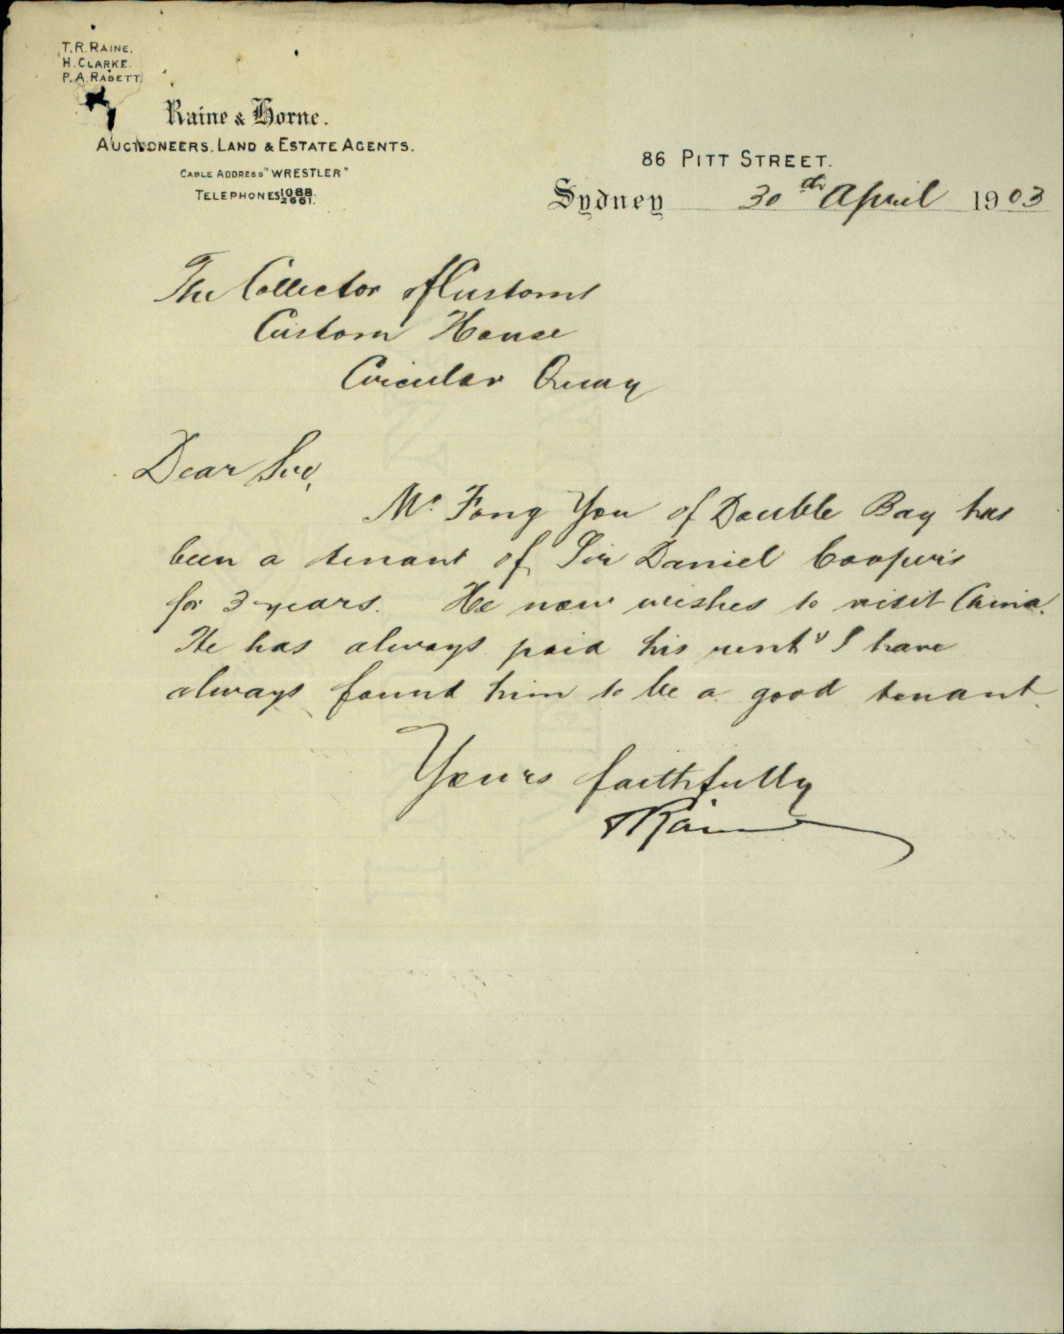 T. R. RAINE.
H. CLARKE.
P. A. RABETT.
Raine & Horne.
AUCTIONEERS, LAND & ESTATE AGENTS.
CABLE ADDRESS "WRESTLER"
TELEPHONES 1088
2661.
86 PITT STREET.
Sydney 30th April 1903
The Collector of Customs
Custom House
Circular Quay
Dear Sir,
Mr. Fong You of Double Bay has
been a tenant of Sir Daniel Cooper's
for 3 years. He now wishes to visit China.
He has always paid his rent & I have
always found him to be a good tenant.
Yours faithfully
T Raine